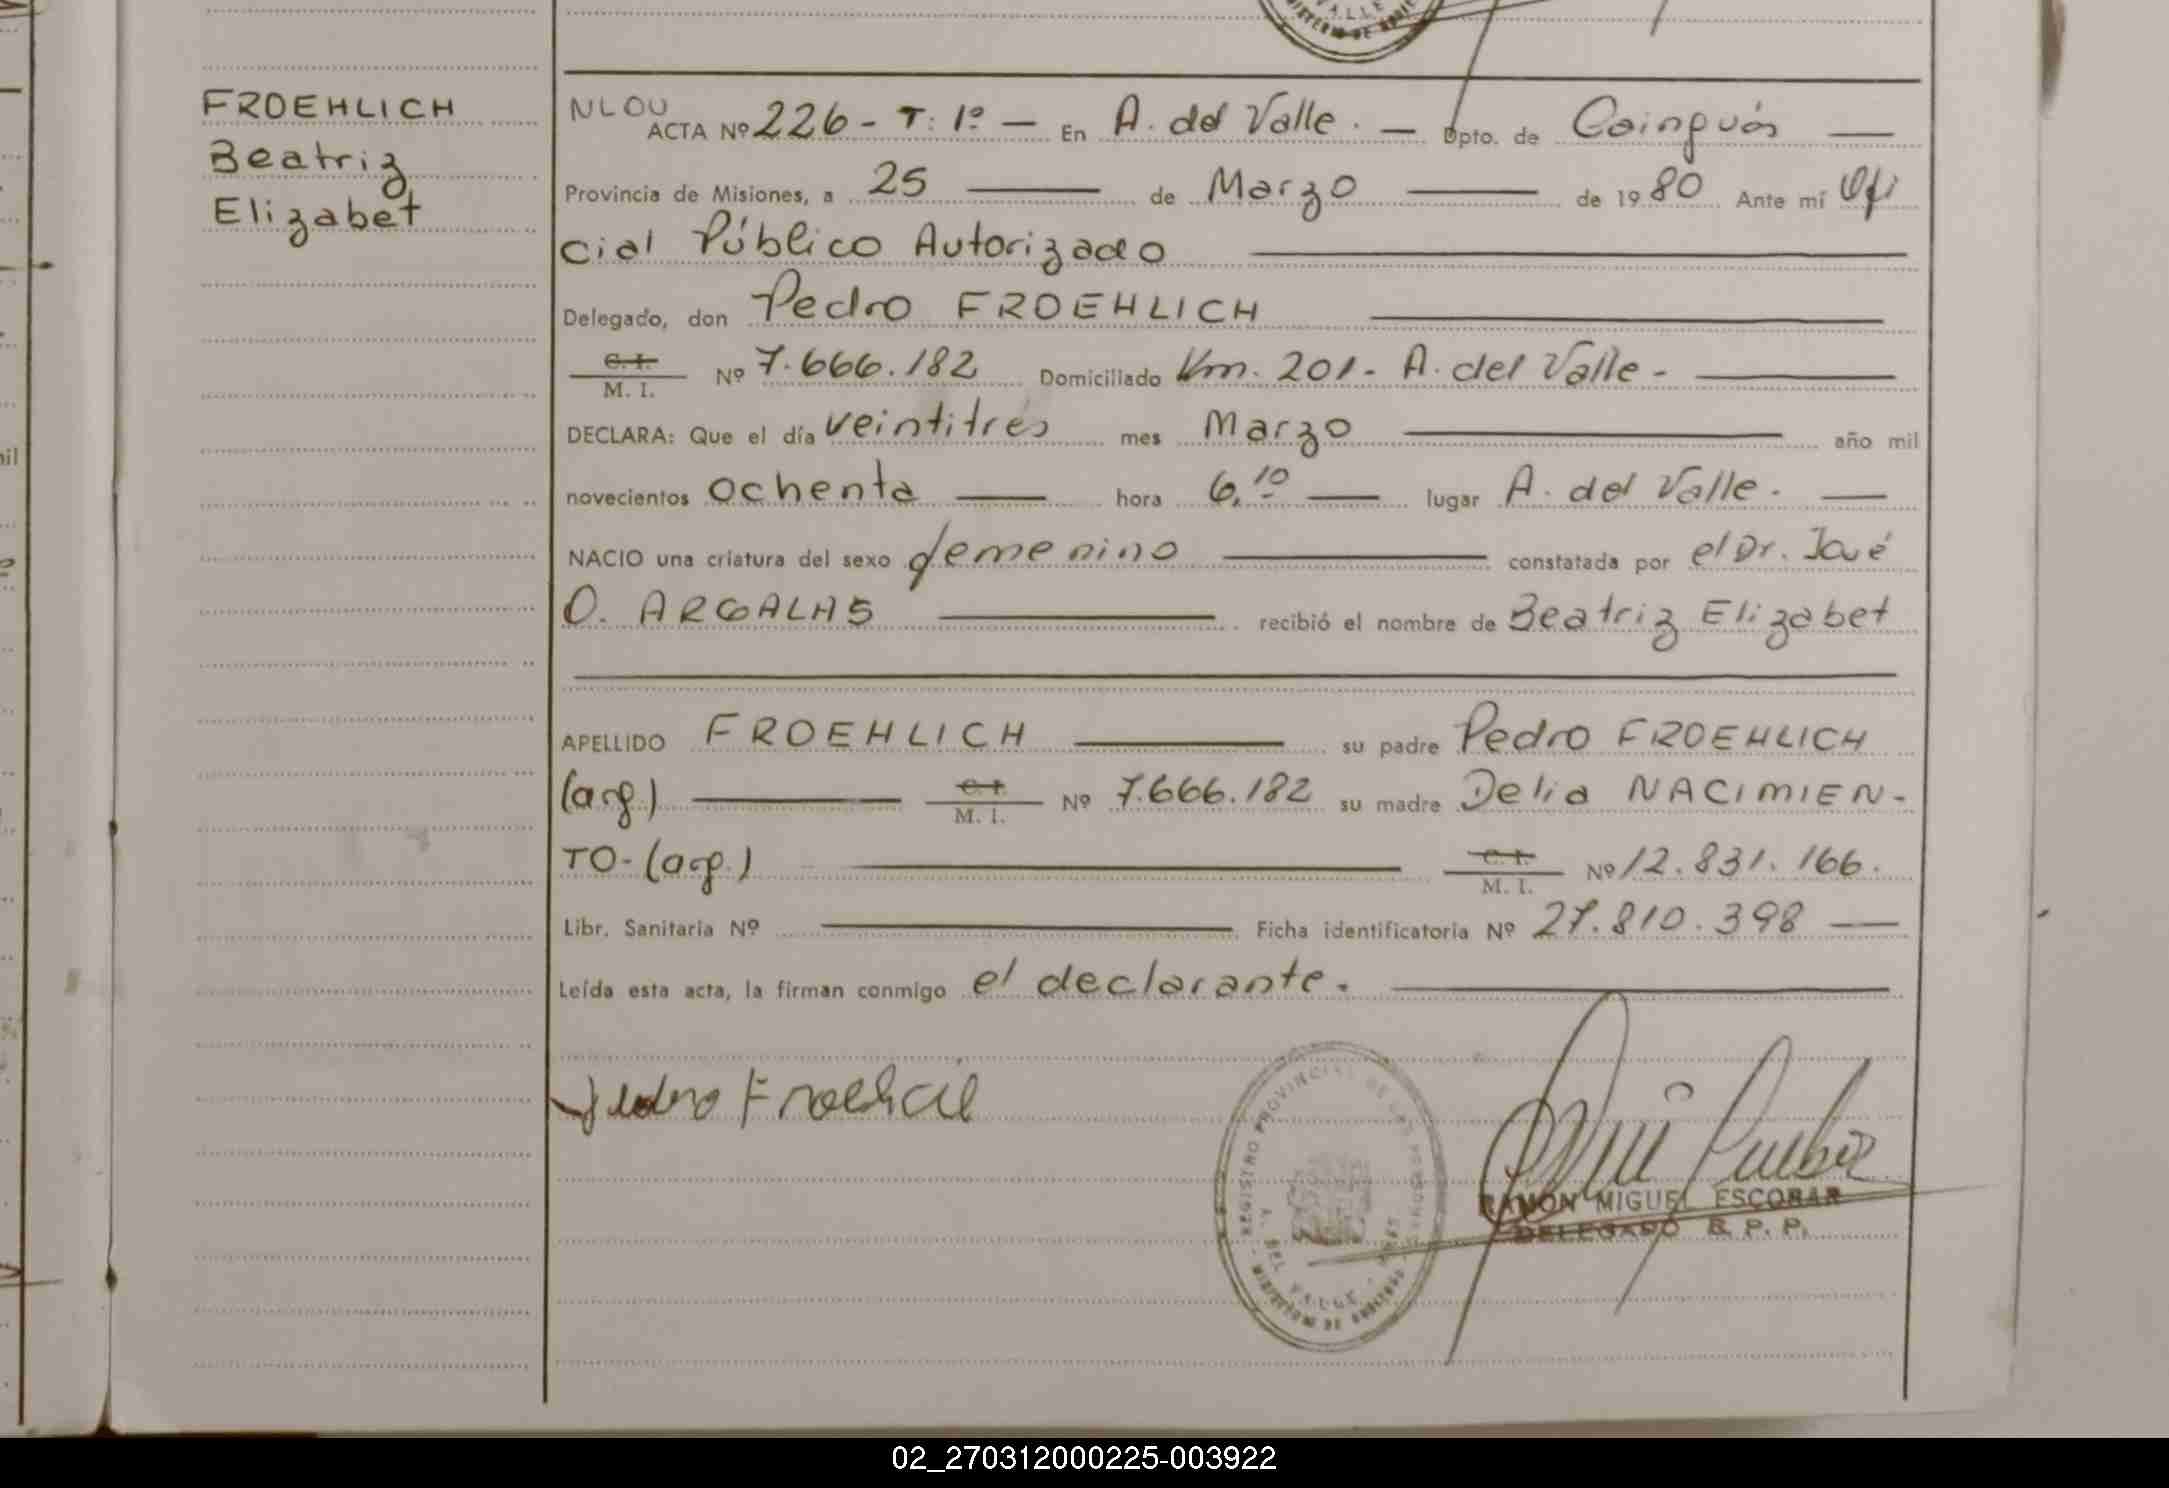 FROEHLICH
Beatriz
Elizabet
NLOU
ACTA Nº 226 - T: 1º — En A. del Valle. — Dpto. de Cainguás —
Provincia de Misiones, a 25 — de Marzo — de 1980 Ante mí Ofi
cial Público Autorizado —
Delegado, don Pedro FROEHLICH —
C. I.
M. I. Nº 7.666.182 Domiciliado Km. 201 - A. del Valle - —
DECLARA: Que el día veintitrés mes Marzo — año mil
novecientos ochenta — hora 6,10 — lugar A. del Valle. —
NACIO una criatura del sexo femenino — constatada por el Dr. José
O. ARGALAS — recibió el nombre de Beatriz Elizabet
APELLIDO FROEHLICH — su padre Pedro FROEHLICH
(arg.) — C. I.
M. I. Nº 7.666.182 su madre Delia NACIMIEN-
TO - (arg.) — C. I.
M. I. Nº 12.831.166.
Libr. Sanitaria Nº — Ficha identificatoria Nº 27.810.398 —
Leída esta acta, la firman conmigo el declarante. —
REGISTRO PROVINCIAL DE LAS PERSONAS
A. DEL VALLE
RAMON MIGUEL ESCOBAR
DELEGADO R. P. P.
02_270312000225-003922